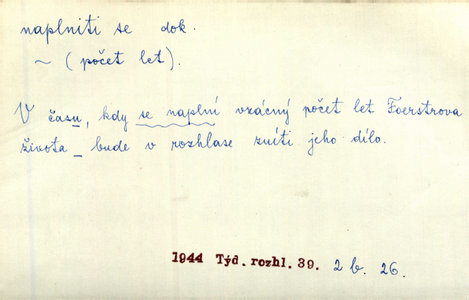 naplniti se dok.
~ (počet let).
V času, kdy se naplní vzácný počet let Foerstrova
života _ bude v rozhlase zníti jeho dílo.
1944 Týd. rozhl. 39. 2 b. 26.